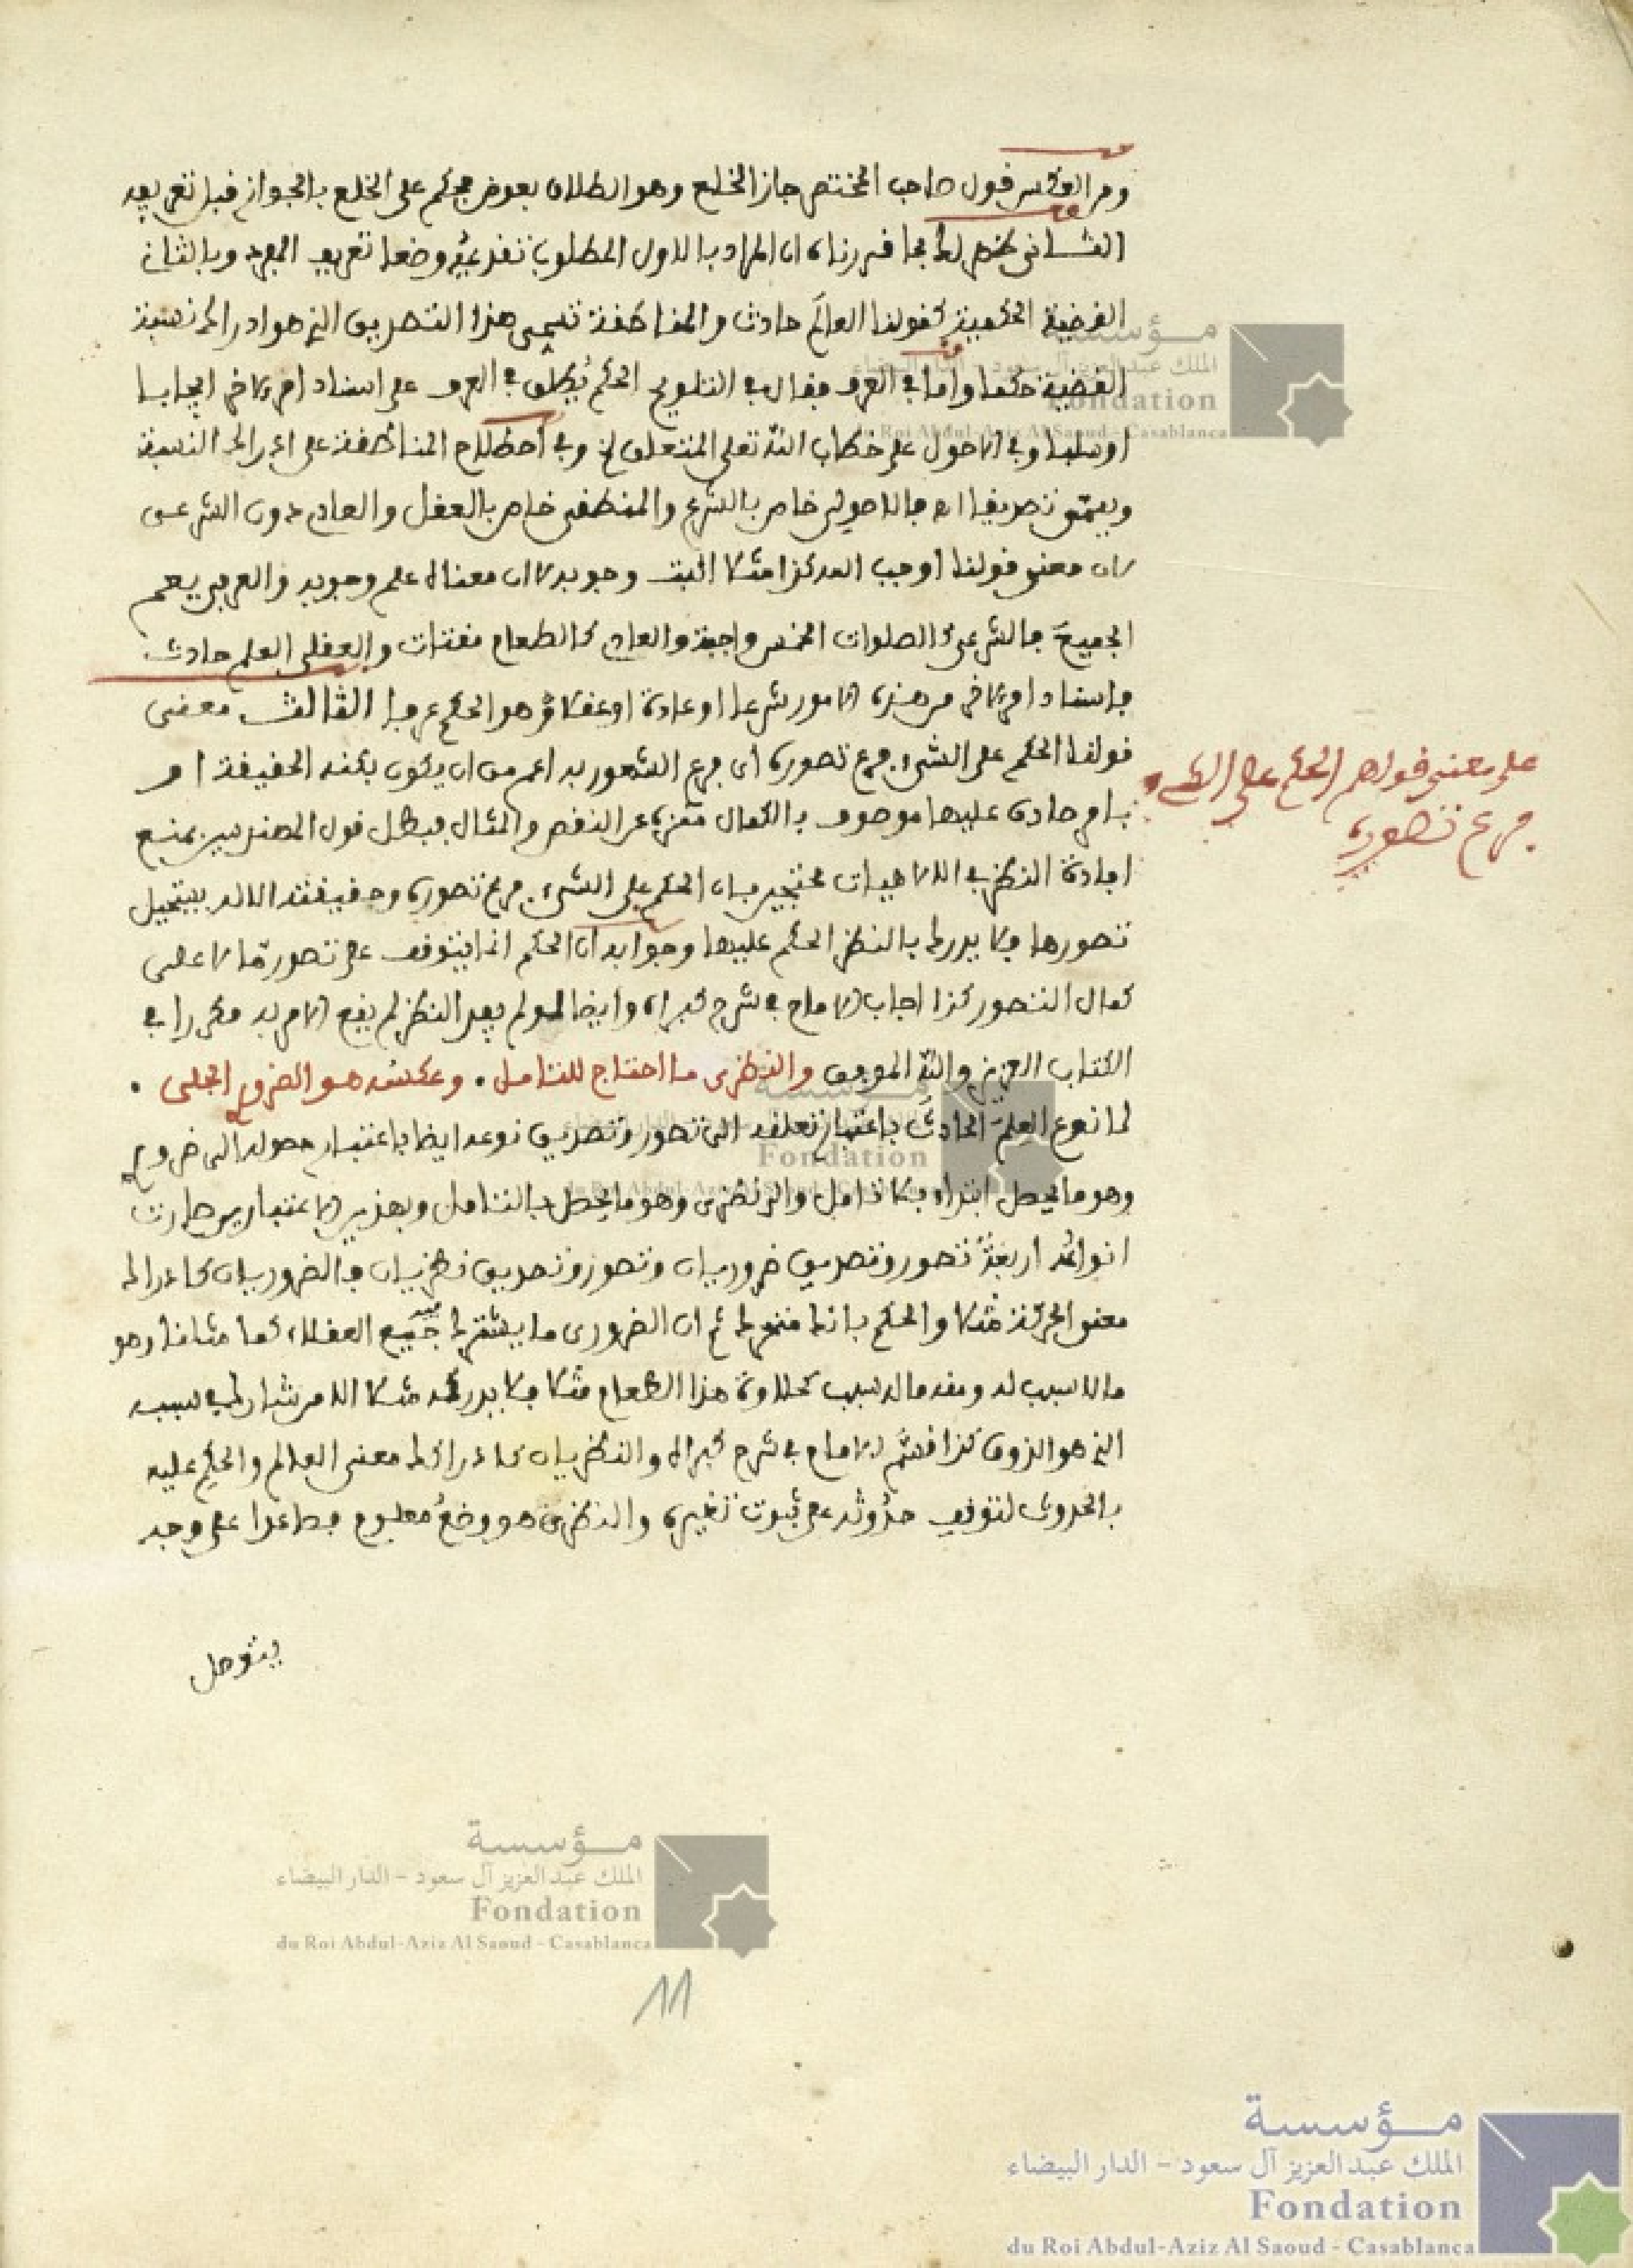 ومن العكس قول صاحب المختصر جاز الخلع وهو الطلاق بعوض فحكم على الخلع بالجواز قبل تعريفه
الثاني ظهر لك مما قررناه ان المراد بالاول المطلوب تقديمه وضعا تعريف المفرد وبالثاني
القضية الحكمية كقولنا العالم حادث والمناطقة تسمى هذا التصديق الذي هو ادراك نسبة
القضية حكما واما في العرف فقال في التلويح الحكم يطلق في العرف على اسناد امر لاخر ايجابا
او سلبا وفي الاصول على خطاب الله تعلى المتعلق الخ وفي اصطلاح المناطقة على ادراك النسبة
ويسمى تصديقا اه فالاصولي خاص بالشرع والمنطقي خاص بالعقل والعادي دون الشرعي
لان معنى قولنا اوجب الله كذا مثلا اثبت وجوبه لا ان معناه علم وجوبه والعرفي يعم
الجميع فالشرعي كالصلوات الخمس واجبة والعادي كالطعام مقتات والعقلي العلم حادث
فاسناد امر لاخر من هذه الامور شرعا او عادة او عقلا هو الحكم عرفا الثالث معنى
قولنا الحكم على الشيء فرع تصوره اى فرع الشعور به اعم من ان يكون بكنه الحقيقة او
بامر صادق عليها موصوف بالكمال منزه عن النقص والمثال فبطل قول المهندسين بمنع
افادة النظر في الالاهيات محتجين بان الحكم على الشيء فرع تصوره وحقيقة الاله يستحيل
تصورها فلا يدرك بالنظر الحكم عليها وجوابه ان الحكم انما يتوقف على تصور ما لا على
كمال التصور كذا اجاب الامام في شرح كبراه وايضا لو لم يفد النظر لم يقع الامر به مكررا في
الكتاب العزيز والله الموفق والنظرى ما احتاج للتامل . وعكسه هو الضروري الجلى .
لما نوع العلم الحادث باعتبار تعلقه الى تصور وتصديق نوعه ايضا باعتبار حصوله الى ضروري
وهو ما يحصل ابتداء بلا تامل والى نظرى وهو ما يحصل بالتامل وبهذين الاعتبارين صارت
انواعه اربعة تصور وتصديق ضروريان وتصور وتصديق نظريان فالضروريان كادراك
معنى الحركة مثلا والحكم بانها متحركة ثم ان الضرورى ما يشترك فيه جميع العقلاء كما مثلنا وهو
ما لا سبب له ومنه ما له سبب كحلاوة هذا الطعام مثلا فلا يدركه مثلا الا من شارك في سببه
الذي هو الذوق كذا قسم الامام في شرح كبراه والنظريان كادراك معنى العالم والحكم عليه
بالحدوث لتوقف حدوثه على ثبوت تغيره والنظر هو وضع معلوم فصاعدا على وجه
يتوصل
على معنى قولهم الحكم على الشيء
فرع تصوره
11
مؤسسة
الملك عبد العزيز آل سعود - الدار البيضاء
Fondation
du Roi Abdul-Aziz Al Saoud - Casablanca